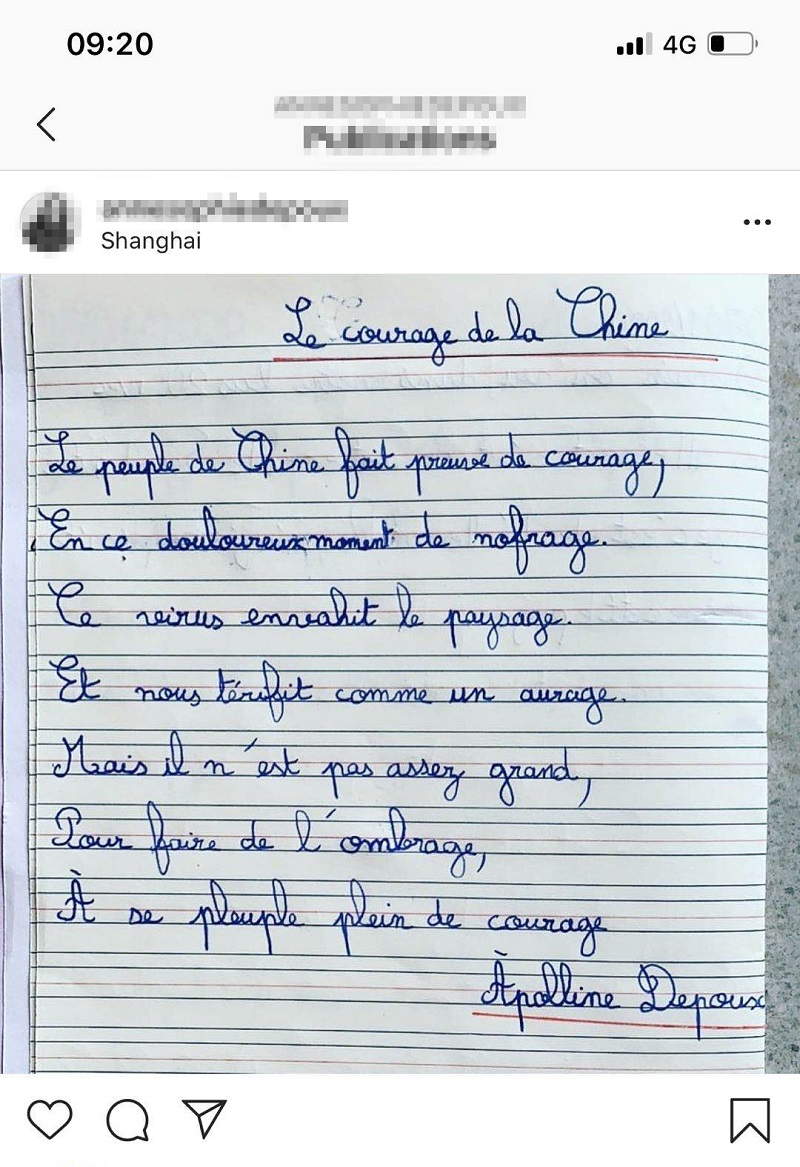 09:20
4G
Shanghai
Le courage de la Chine
Le peuple de Chine fait preuve de courage,
En ce douloureux moment de nofrage.
Ce veirus envahit le paysage.
Et nous térifit comme un aurage.
Mais il n'est pas assez grand,
Pour faire de l'ombrage,
À se pleuple plein de courage
Àpolline Depoux